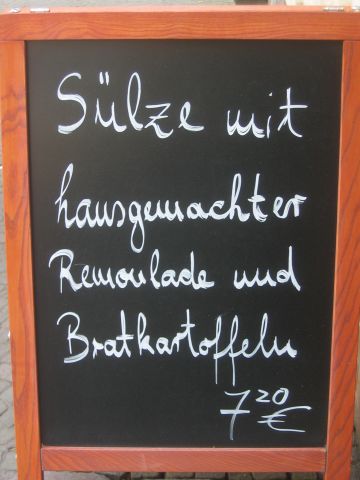 Sülze mit
hausgemachter
Remoulade und
Bratkartoffeln
7 20 €